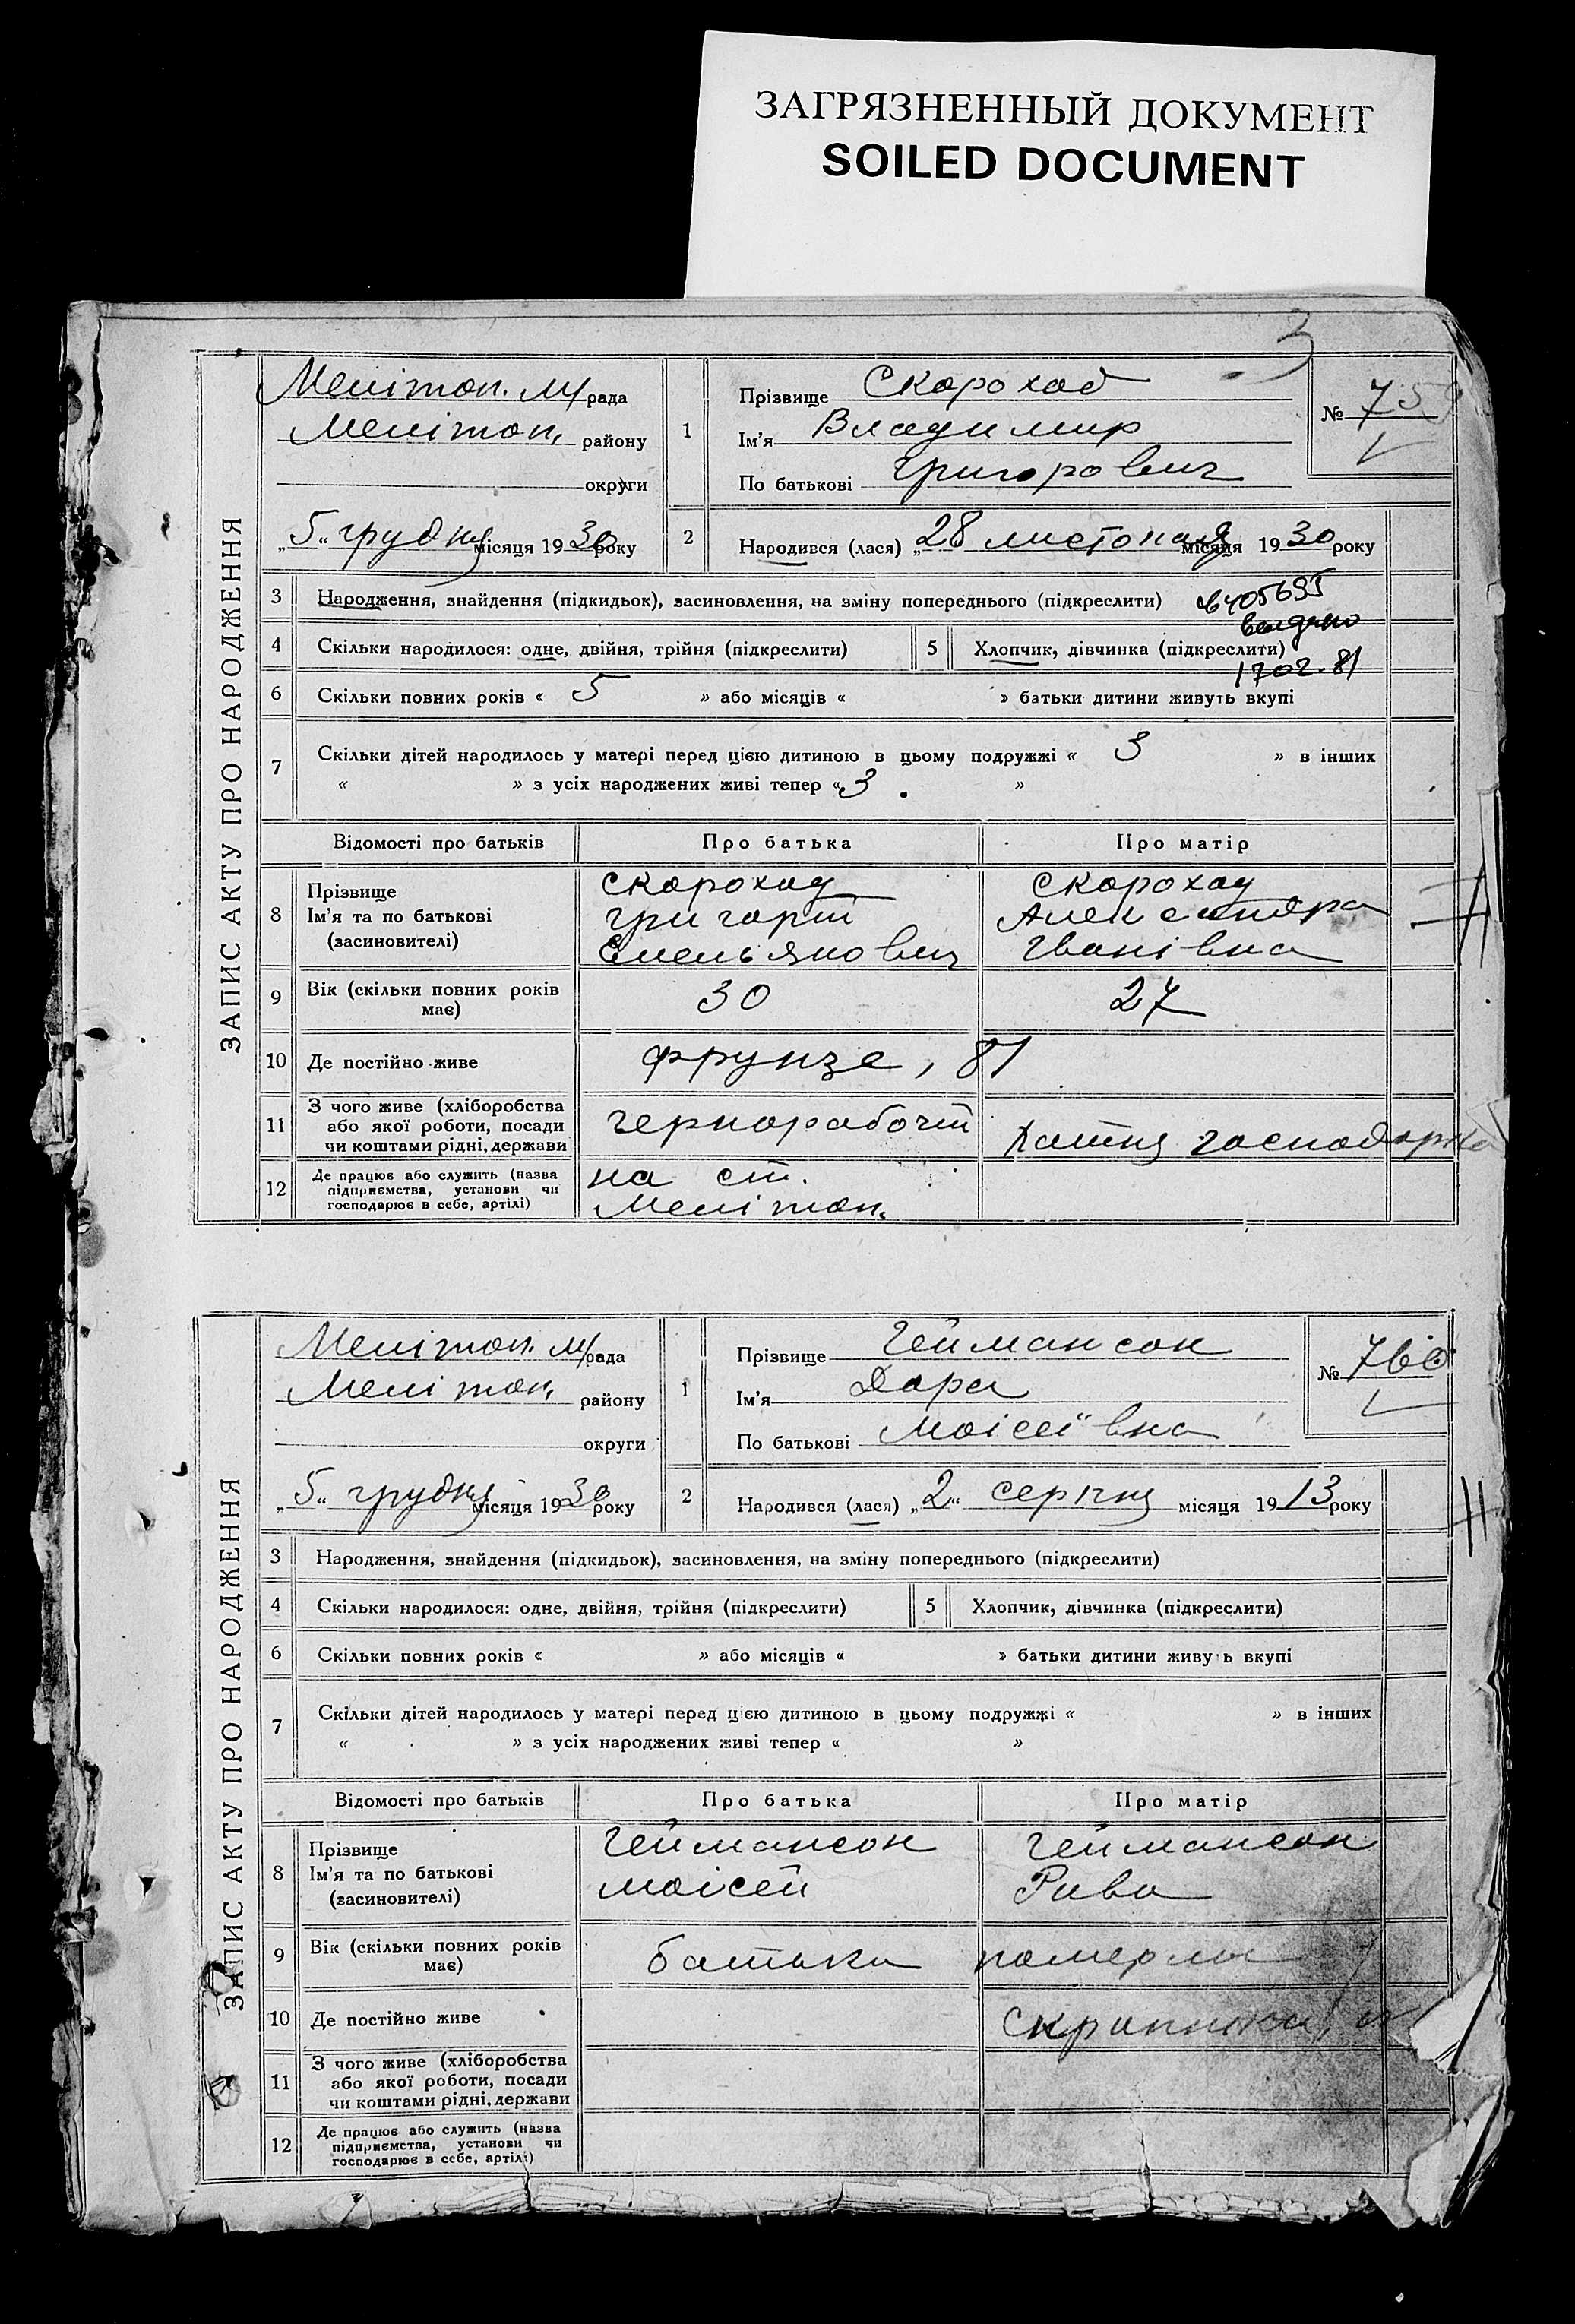 ЗАГРЯЗНЕННЫЙ ДОКУМЕНТ
SOILED DOCUMENT
3
ЗАПИС АКТУ ПРО НАРОДЖЕННЯ
Мелітоп. м/рада
Мелітоп. району
округи
„5“ грудня місяця 1930 року
1
Прізвище Скороход
Ім'я Владимир
По батькові Григорович
№ 759
2
Народився (лася) „28 листопада місяця 1930 року
3 Народження, знайдення (підкидьок), засиновлення, на зміну попереднього (підкреслити)
4 Скільки народилося: одне, двійня, трійня (підкреслити) 5 Хлопчик, дівчинка (підкреслити)
6 Скільки повних років « 5 » або місяців « » батьки дитини живуть вкупі
7 Скільки дітей народилось у матері перед цією дитиною в цьому подружжі « 3 » в інших
« » з усіх народжених живі тепер « 3 . »
Відомості про батьків Про батька Про матір
8 Прізвище Скороход Скороход
Ім'я та по батькові Григорій Александра
(засиновителі) Емельянович Іванівна
9 Вік (скільки повних років має) 30 27
10 Де постійно живе Фрунзе, 81
11 З чого живе (хліборобства
або якої роботи, посади чернорабочій Хатня господарка
чи коштами рідні, держави
12 Де працює або служить (назва на ст.
підприємства, установи чи Мелітоп.
господарює в себе, артілі)
ЗАПИС АКТУ ПРО НАРОДЖЕННЯ
Мелітоп. м/рада
Мелітоп. району
округи
„5“ грудня місяця 1930 року
1
Прізвище Геймансон
Ім'я Дора
По батькові Моісеївна
№ 760
2
Народився (лася) „2“ серпня місяця 1913 року
3 Народження, знайдення (підкидьок), засиновлення, на зміну попереднього (підкреслити)
4 Скільки народилося: одне, двійня, трійня (підкреслити) 5 Хлопчик, дівчинка (підкреслити)
6 Скільки повних років « » або місяців « » батьки дитини живуть вкупі
7 Скільки дітей народилось у матері перед цією дитиною в цьому подружжі « » в інших
« » з усіх народжених живі тепер « »
Відомості про батьків Про батька Про матір
8 Прізвище Геймансон Геймансон
Ім'я та по батькові Моісей Рива
(засиновителі)
9 Вік (скільки повних років має) батьки померли
10 Де постійно живе
11 З чого живе (хліборобства
або якої роботи, посади
чи коштами рідні, держави
12 Де працює або служить (назва
підприємства, установи чи
господарює в себе, артілі)